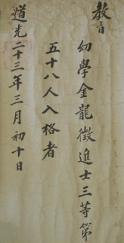 教旨
幼學金龍徵進士三等第
五十八人入格者
道光二十三年三月初十日